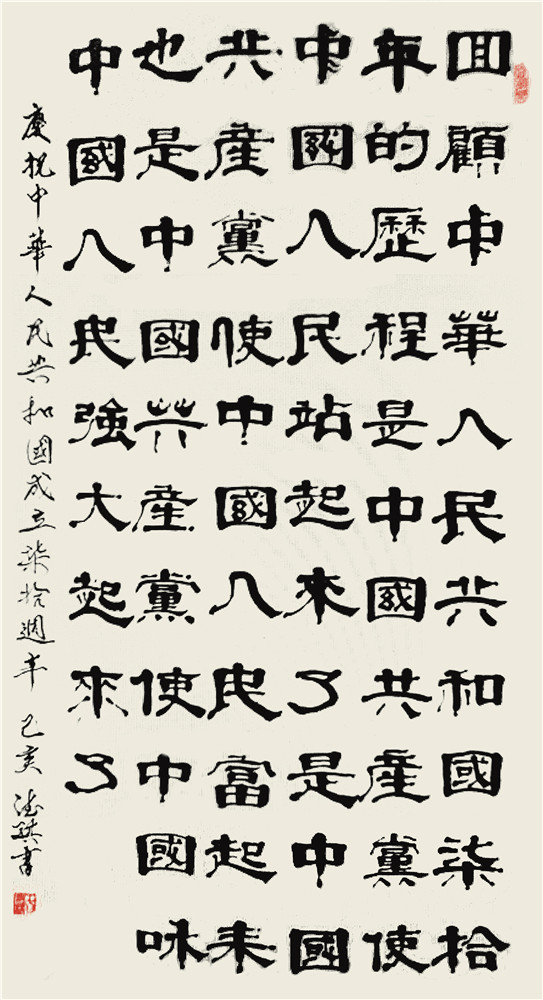 回顧中華人民共和國柒拾
年的歷程是中國共產黨使
中國人民站起來了是中國
共產黨使中國人民富起来
也是中國共產黨使中國咊
中國人民強大起來了
慶祝中華人民共和國成立柒拾週年 己亥 書